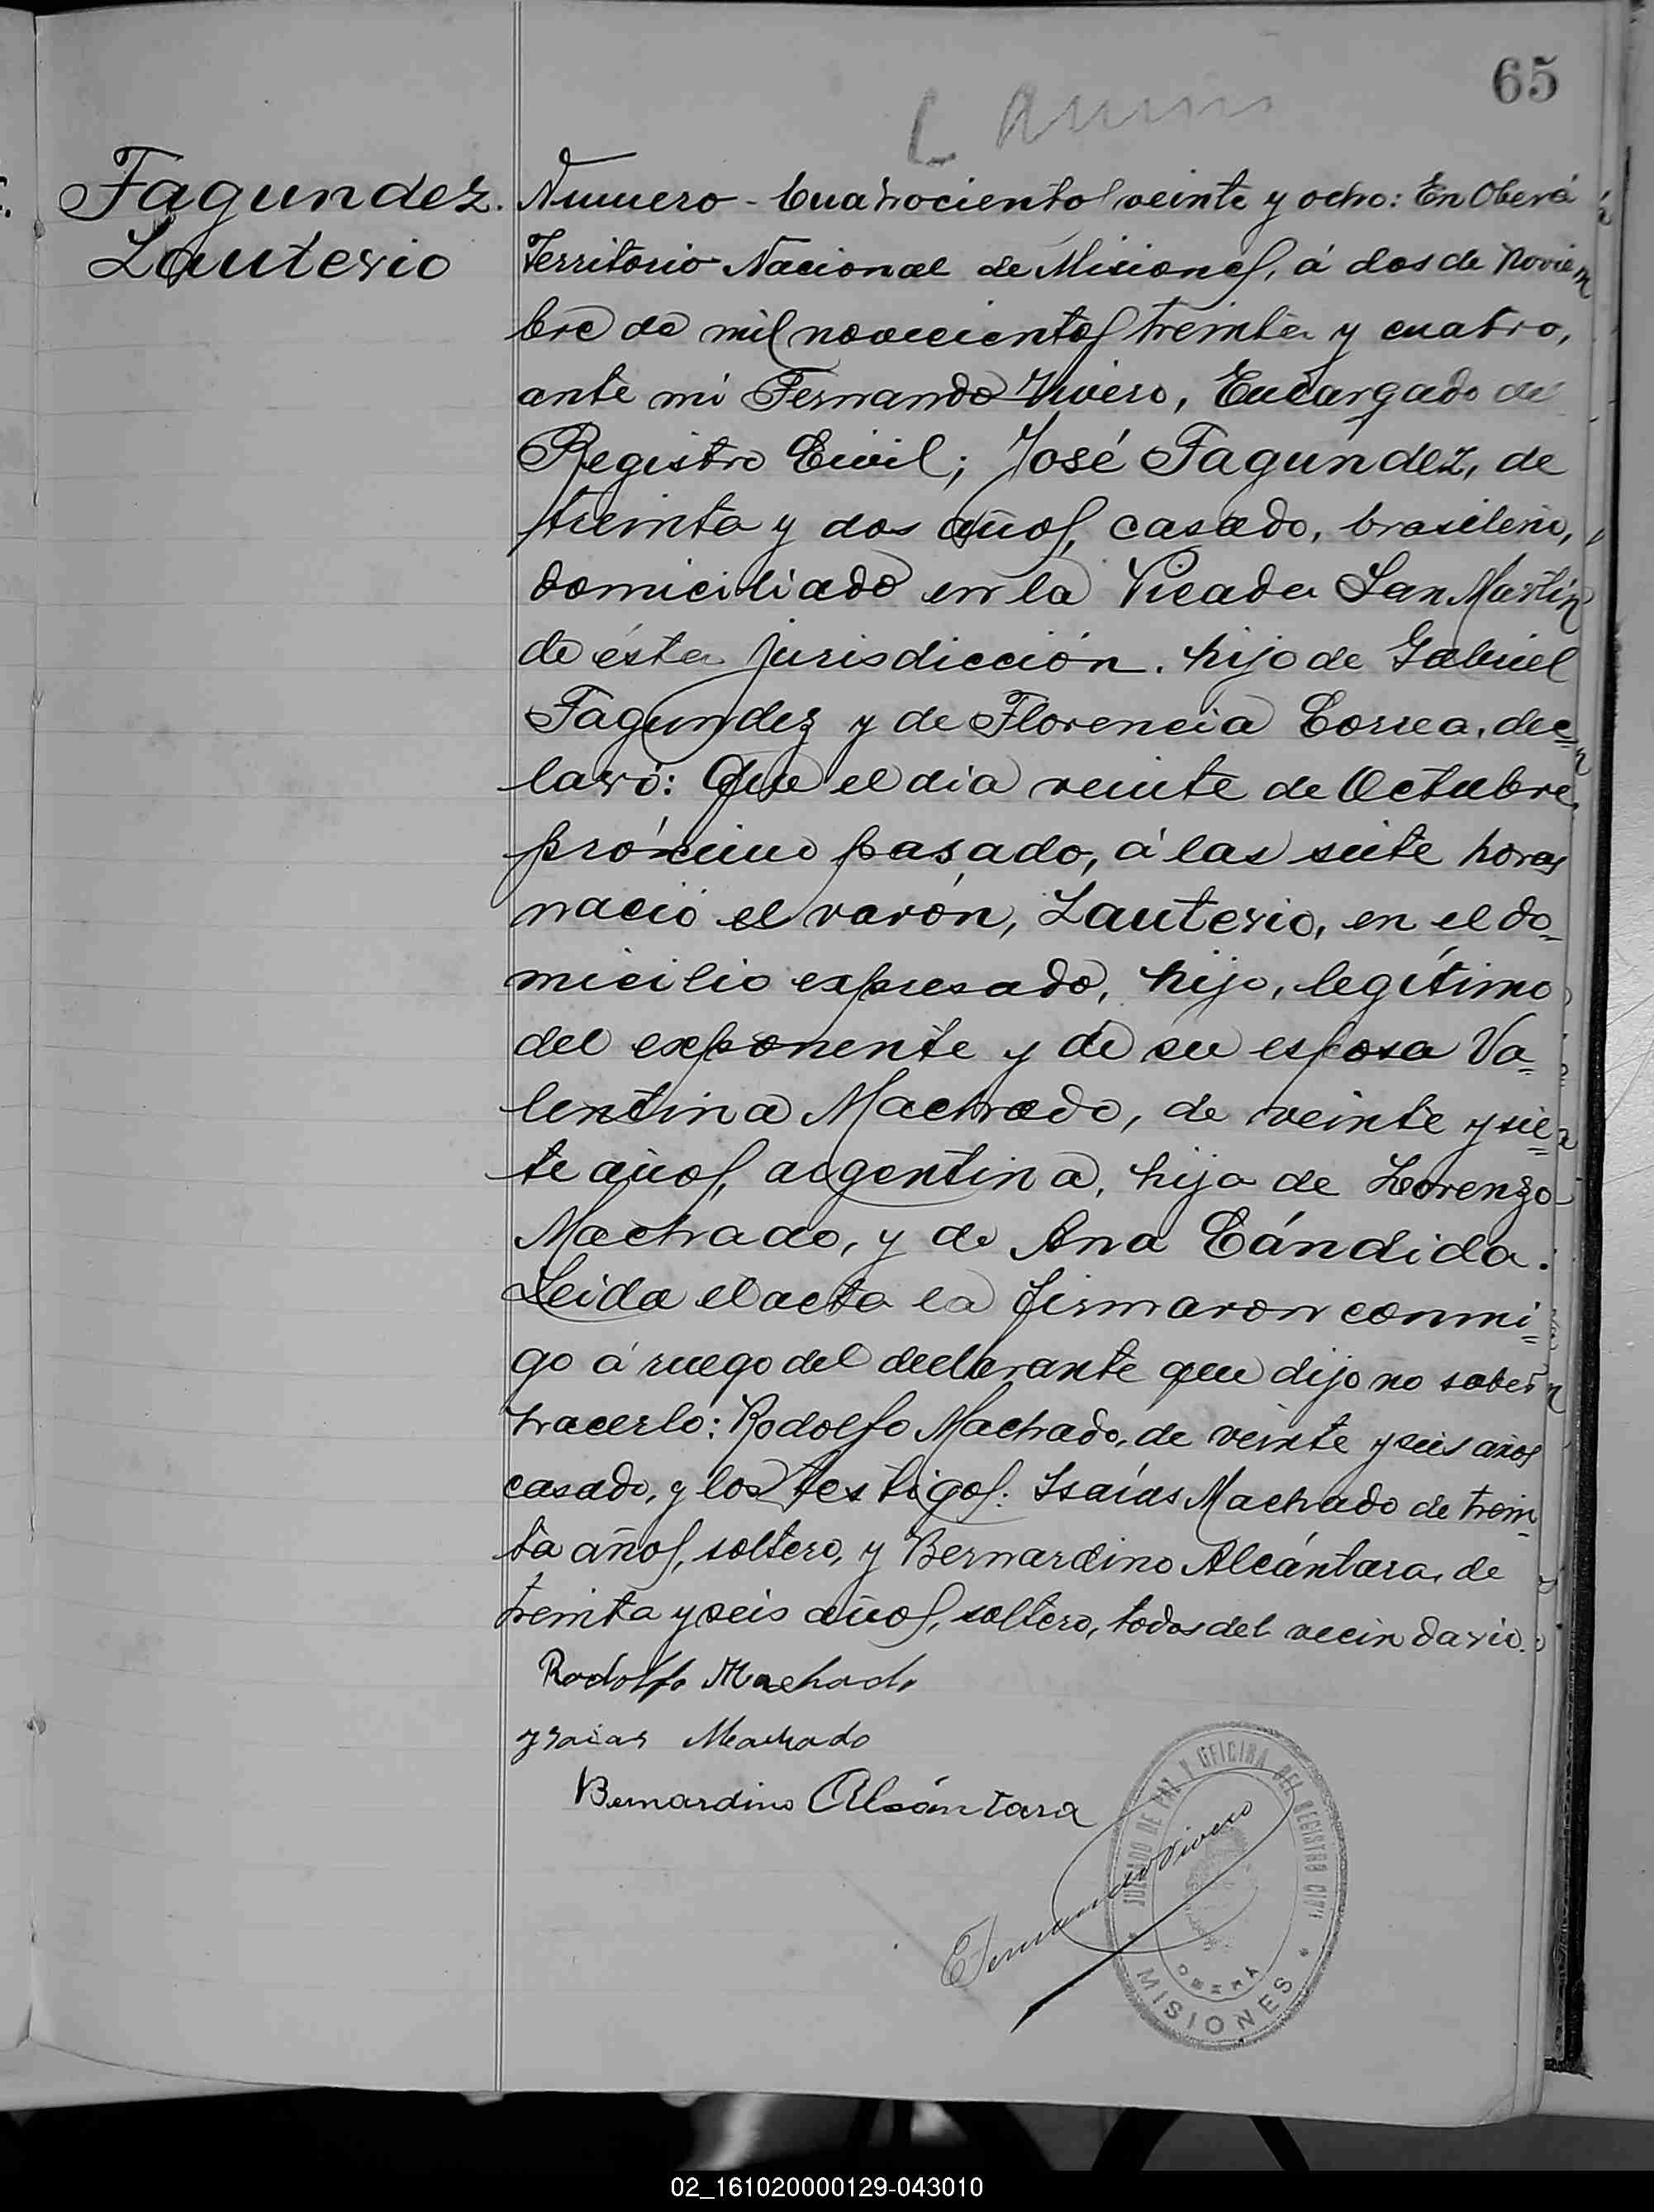 65
Fagundez.
Lauterio
Numero - Cuatrocientos veinte y ocho: En Oberá
Territorio Nacional de Misiones, á dos de Noviem
bre de mil novecientos treinta y cuatro,
ante mi Fernando Vivero, Encargado del
Registro Civil; José Fagúndez, de
treinta y dos años, casado, brasileño,
domiciliado en la Picada San Martín
de ésta jurisdicción. hijo de Gabriel
Fagundez y de Florencia Correa, dec=
laró: Que el dia veinte de Octubre
próximo pasado, á las siete horas
nació el varón, Lauterio, en el do-
micilio expresado, hijo, legítimo
del exponente y de su esposa Va=
lentina Machado, de veinte y sie=
te años, argentina, hija de Lorenzo
Machado, y de Ana Cándida.
Leida el acta la firmaron conmi=
go á ruego del declarante que dijo no saber
hacerlo: Rodolfo Machado, de veinte y seis años
casado, y los testigos: Isaías Machado de trein-
ta años, soltero, y Bernardino Alcántara, de
treinta y seis años, soltero, todos del vecindario.
Rodolfo Machado
Ysaias Machado
Bernardino Alcántara
Fernando Vivero
JUZGADO DE PAZ Y OFICINA DEL REGISTRO CIVIL
OBERÁ
MISIONES
02_161020000129-043010